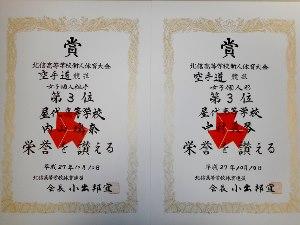 賞
北信高等学校新人体育大会
空手道競技
女子個人組手
第3位
屋代高等学校
内
奈
栄誉を讃える
平成27年10月10日
北信高等学校体育連盟
会長 小出邦
賞
北信高等学校新人体育大会
空手道競技
女子個人形
第3位
屋代高等学校
栄誉を讃える
平成27年10月10日
北信高等学校体育連盟
会長 小出邦